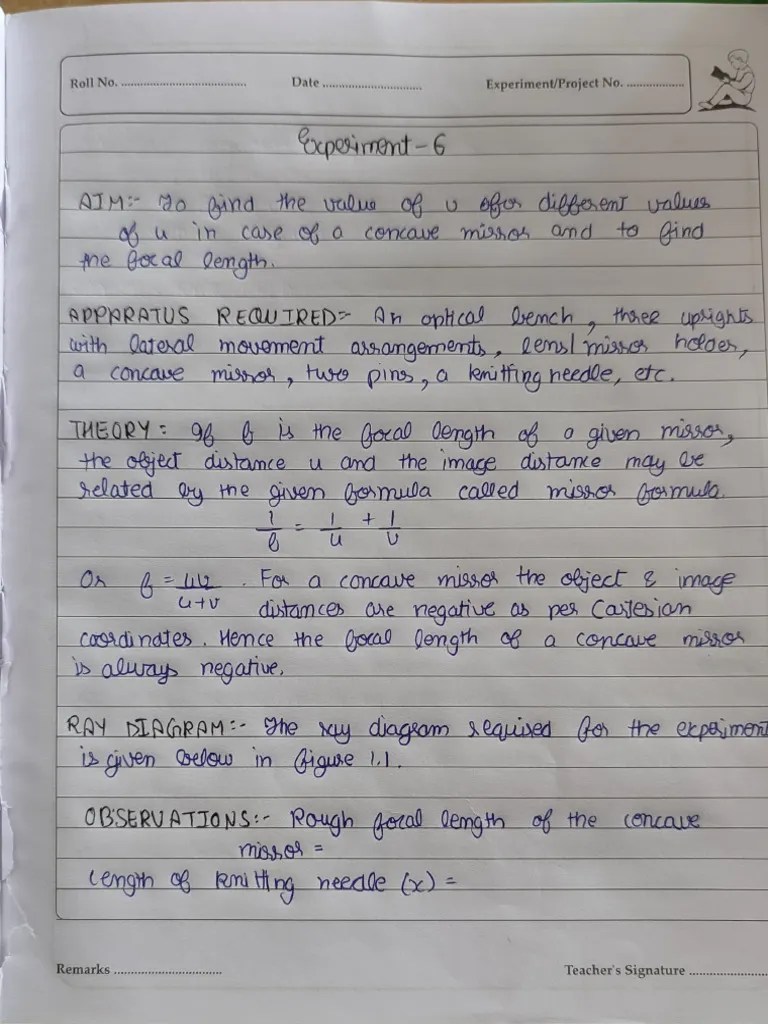 Roll No. .................................... Date ............................. Experiment/Project No. .................
Experiment-6
AIM:- To find the value of v for different values
of u in case of a concave mirror and to find
the focal length.
APPARATUS REQUIRED:- An optical bench, three uprights
with lateral movement arrangements, lens/mirror holder,
a concave mirror, two pins, a knitting needle, etc.
THEORY: If f is the focal length of a given mirror,
the object distance u and the image distance may be
related by the given formula called mirror formula.
1/f = 1/u + 1/v
Or f = uv/u+v . For a concave mirror the object & image
distances are negative as per Cartesian
coordinates. Hence the focal length of a concave mirror
is always negative.
RAY DIAGRAM:- The ray diagram required for the experiment
is given below in figure 1.1.
OBSERVATIONS:- Rough focal length of the concave
mirror =
Length of knitting needle (x) =
Remarks ................................ Teacher's Signature .......................